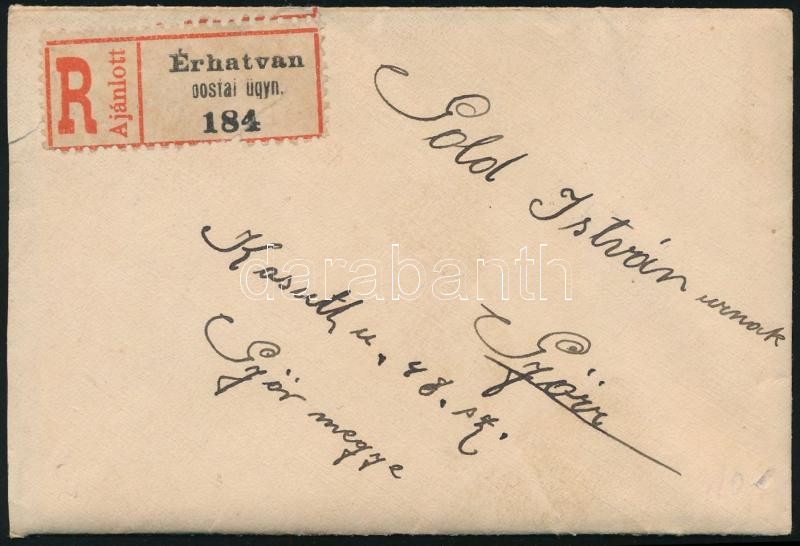 R Ajánlott
Érhatvan
postai ügyn.
184
Gold István urnak
Győrr
Kasuth u. 48. sz.
Győr megye
darabanth